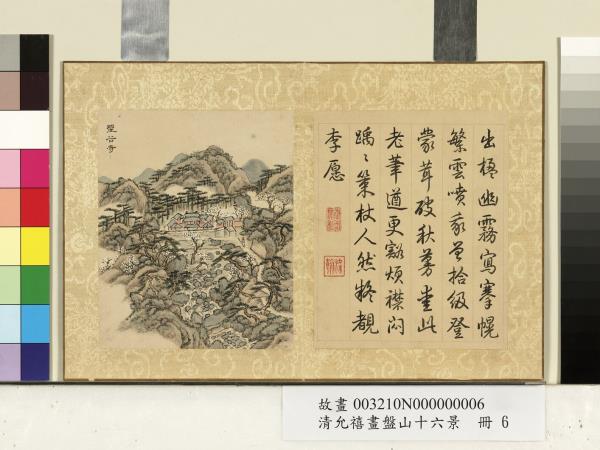 盤谷寺
出幽霧寫搴幌
繁雲噴我曾拾級登
蒙茸破秋畫此
老筆遒更豁煩襟悶
踽〻策杖人然疑覩
李愿
故畫 003210N000000006
清允禧畫盤山十六景 冊 6